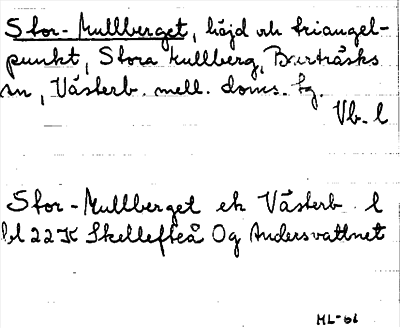 Stor-Kullberget, höjd och triangel-
punkt, Stora Kullberg, Burträsks
sn, Västerb. mell. doms. tg.
Vb. l
Stor-Kullberget ek Västerb. l
bl 22 K Skellefteå Og Andersvattnet
HL-61